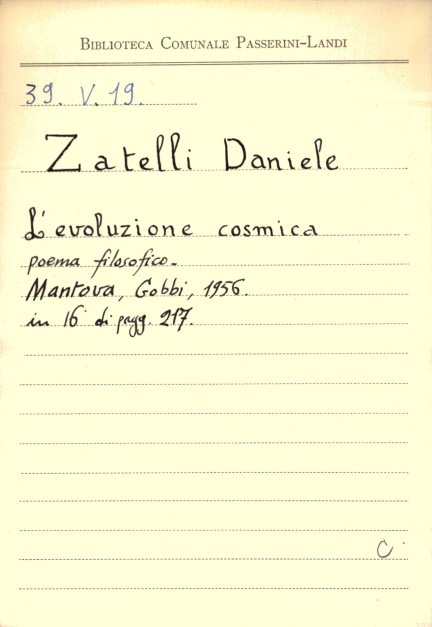 BIBLIOTECA COMUNALE PASSERINI-LANDI
39. V. 19.
Zatelli Daniele
L'evoluzione cosmica
poema filosofico.
Mantova, Gobbi, 1956.
in 16° di pagg. 217.
C